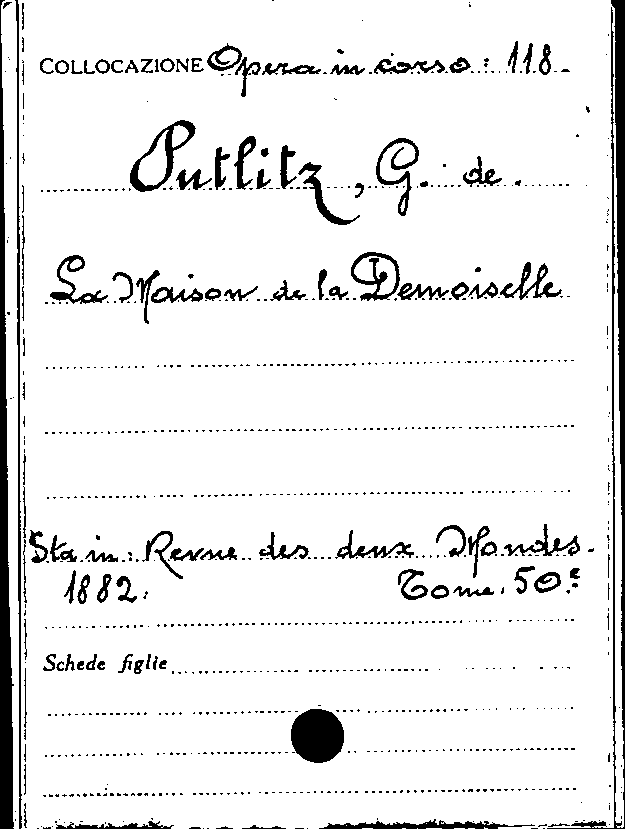 COLLOCAZIONE Opera in corso: 118.
Putlitz, G. de.
La Maison de la Demoiselle
Sta in: Revue des deux Mondes.
1882. Tome. 50.e
Schede figlie